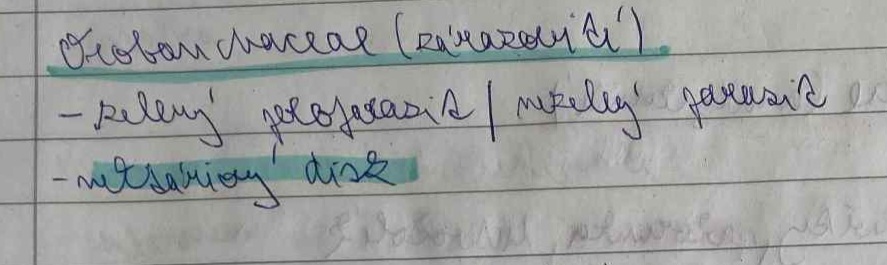 Orobanchaceae (zárazovité)
- zelený poloparazit / nezelený parazit
- nektáriový disk